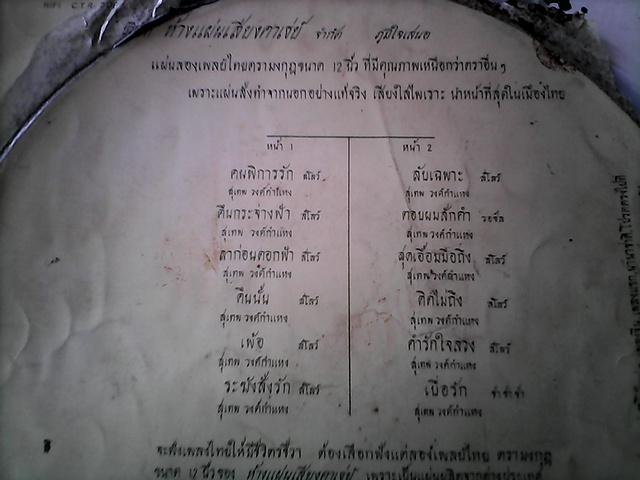 ห้างแผ่นเสียงคาเธ่ย์ จำกัด ภูมิใจเสนอ
แผ่นลองเพลย์ไทยตรามงกุฎขนาด 12 นิ้ว ที่มีคุณภาพเหนือกว่าตราอื่น ๆ
เพราะแผ่นสั่งทำจากนอกอย่างแท้จริง เสียงใสไพเราะ นำหน้าที่สุดในเมืองไทย
หน้า 1
คนพิการรัก สโลว์
สุเทพ วงศ์กำแหง
คืนกระจ่างฟ้า สโลว์
สุเทพ วงศ์กำแหง
ลาก่อนดอกฟ้า สโลว์
สุเทพ วงศ์กำแหง
คืนนั้น สโลว์
สุเทพ วงศ์กำแหง
เพ้อ สโลว์
สุเทพ วงศ์กำแหง
ระฆังสั่งรัก สโลว์
สุเทพ วงศ์กำแหง
หน้า 2
ลับเฉพาะ สโลว์
สุเทพ วงศ์กำแหง
ตอบผมสักคำ วอซ์ล
สุเทพ วงศ์กำแหง
สุดเอื้อมมือถึง สโลว์
สุเทพ วงศ์กำแหง
คิดไม่ถึง สโลว์
สุเทพ วงศ์กำแหง
คำรักใจลวง สโลว์
สุเทพ วงศ์กำแหง
เบื่อรัก ช่า ช่า ช่า
สุเทพ วงศ์กำแหง
จะฟังเพลงไทยให้มีชีวิตชีวา ต้องเลือกฟังแต่ลองเพลย์ไทย ตรามงกุฎ
ขนาด 12 นิ้วของ ห้างแผ่นเสียงคาเธ่ย์ เพราะเป็นแผ่นผลิตจากต่างประเทศ